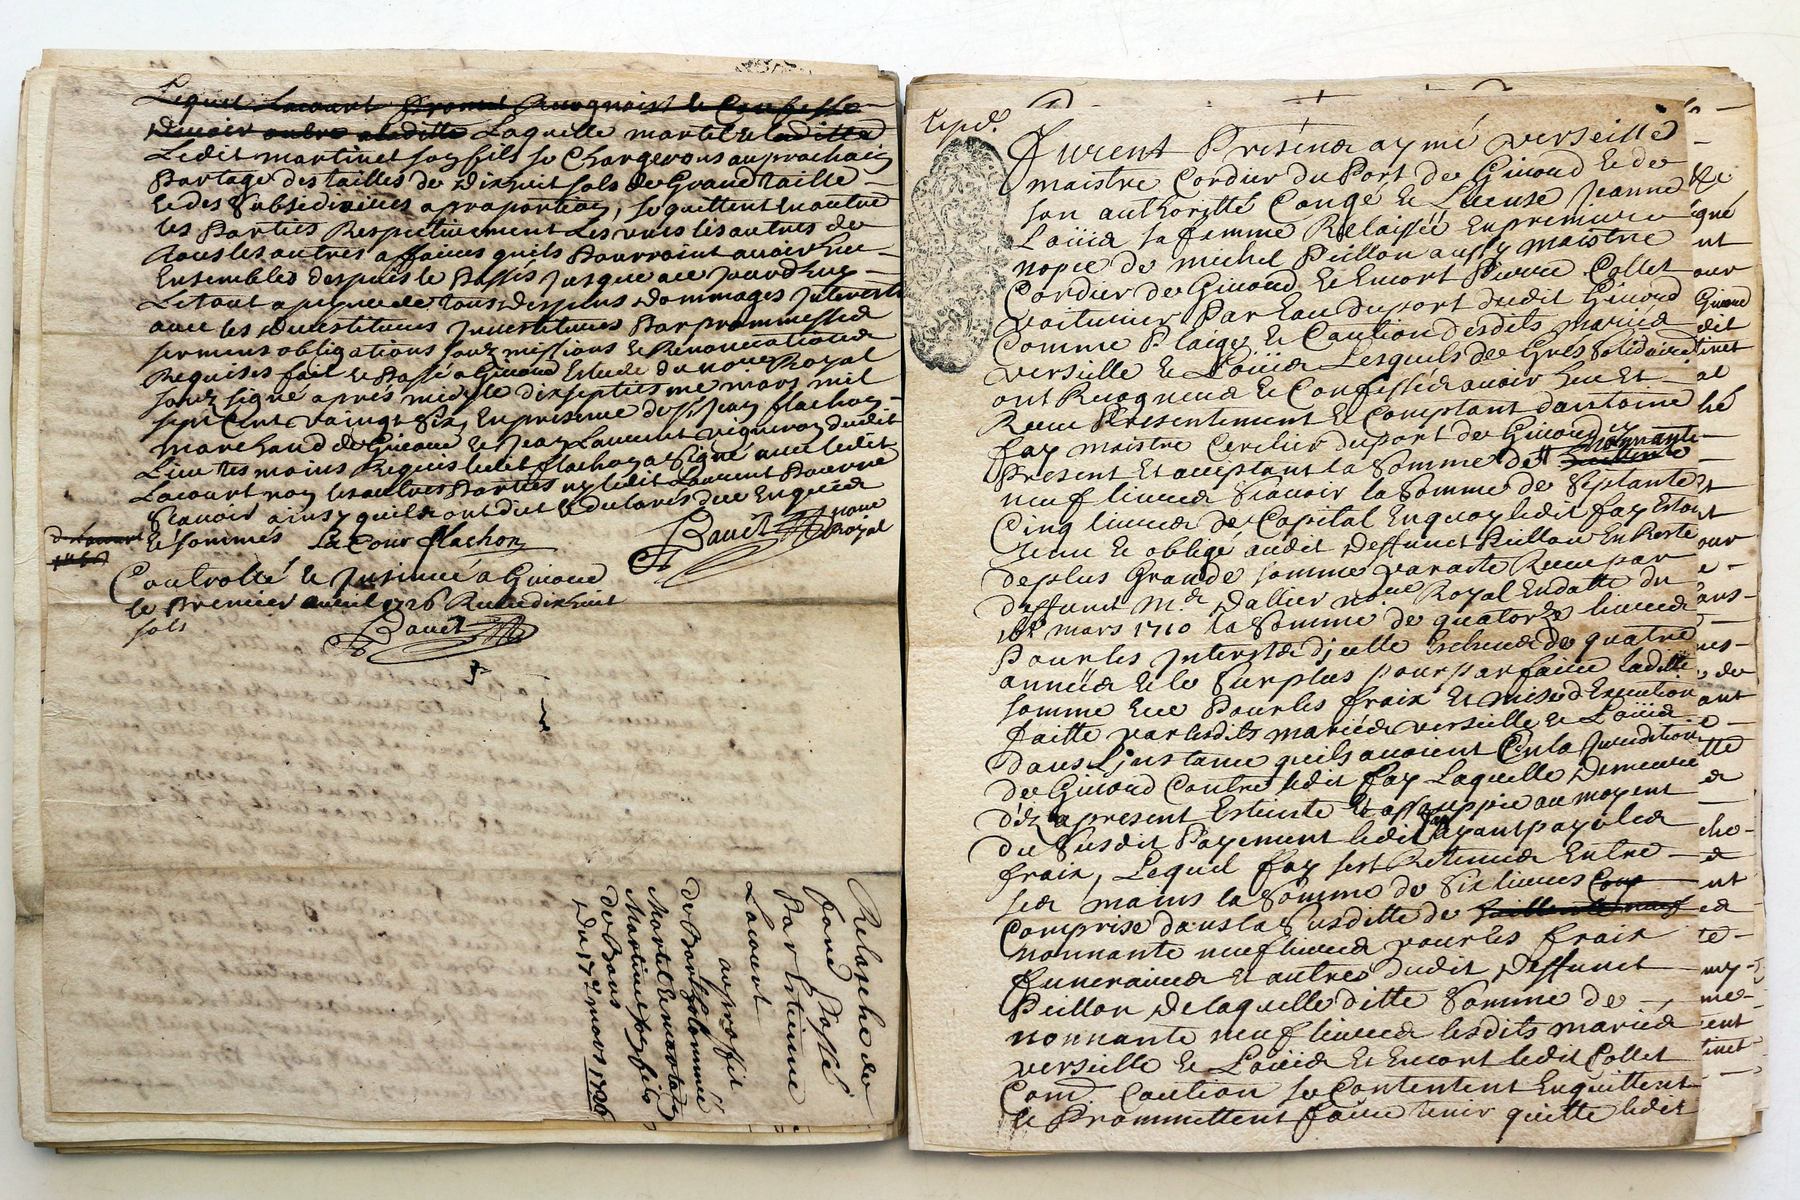 Lequel Lacourt Promet Recognoist et Confesse
devoir outre ladite Laquelle martel et
Ledit martinet son fils se Chargerons au prochain
Partage des tailles de Dixhuit sols de Grand taille
Et des Subsidiaires a proportion, se quittent en outre
les Parties Respectivement Les unes les autres de
tous les autres affaires quils Pourroint avoir heu
Ensembles despuis le Passé Jusque a ce Jourdhuy
Le tout a peyne de tous despens dommages Interests
avec les devestitures Investitures Par prommesses
sermens obligations soubmissions et Renonciations
Requises fait et Passé a Givord Estude du no.re Royal
soubz signé aprés midy le dixseptiesme mars mil
sept Cent vaingt Six, En presence de Sr Jean flachon
marchand de Givord et Jean Laurent vigneron dudit
Lieu tesmoins Requis ledit flachon a signé avec ledit
Lacourt non les autres Parties ny ledit Laurent Pour ne
Scavoir ainsy quils ont dit et declaré de ce Enquis
Et sommés La Cour flachon
Bauët no.re Royal
Controllé et Insinué a Givord
le Premier avril 1726 Receu dixhuit
sols
Bauët
Relasche de
fond Passé
Par Estienne
Lacourt
au proffit
de Barthelemie
Martel Et
Martinet son fils
de Bans
Du 17e mars 1726
Exped.
Furent Présens aymé verseille
maistre Cordier du Port de Givord Et de
son authorité Congé et Licence Jeanne
Loüis sa femme Relaissée En premiere
nopce de michel Peillon aussy maistre
Cordier de Givord, Et Encort Pierre Collet
voiturier Par Eau du port dudit Givord
Comme Plaige et Caution desdits mariés
verseille et Loüis Lesquels de Gres solidairement
ont Recogneus et Confessés avoir heu Et
Receu Presentement et Comptant d'antoine
fay maistre Cerclier du port de Givord icy
Present Et acceptant la Somme de nonnante
neuf livres Scavoir la Somme de Septante
Cinq livres de Capital En quoy ledit fay Estoit
tenu et obligé audit deffunct Peillon En Reste
de plus Grande somme par acte Receu par
deffunct M.e Dallier no.re Royal En datte du
mars 1710 la Somme de quatorze livres
Pour les Interests d'jcelle Escheus de quatre
années Et le Surplus pour parfaire ladite
somme Ect Pour les fraix Et mise d'Execution
faitte par lesdits mariés verseille et Loüis
dans L'instance quils avoient En la Jurisdiction
de Givord Contre ledit fay Laquelle Demeure
déz apresent Esteinte Et assouppie au moyent
du Susdit Payement ledit fay ayant payé les
fraix, Lequel fay sest Retenus Entre
ses mains la Somme de Six livres
Comprise dans la Susditte de
nonnante neuf livres pour les fraix
funeraires Et autres dudit Deffunct
Peillon de laquelle ditte Somme de
nonnante neuf livres lesdits mariés
verseille et Loüis Et Encort ledit Collet
Com.e Caution se Contentent En quittent
et Promettent faire tenir quitte ledit